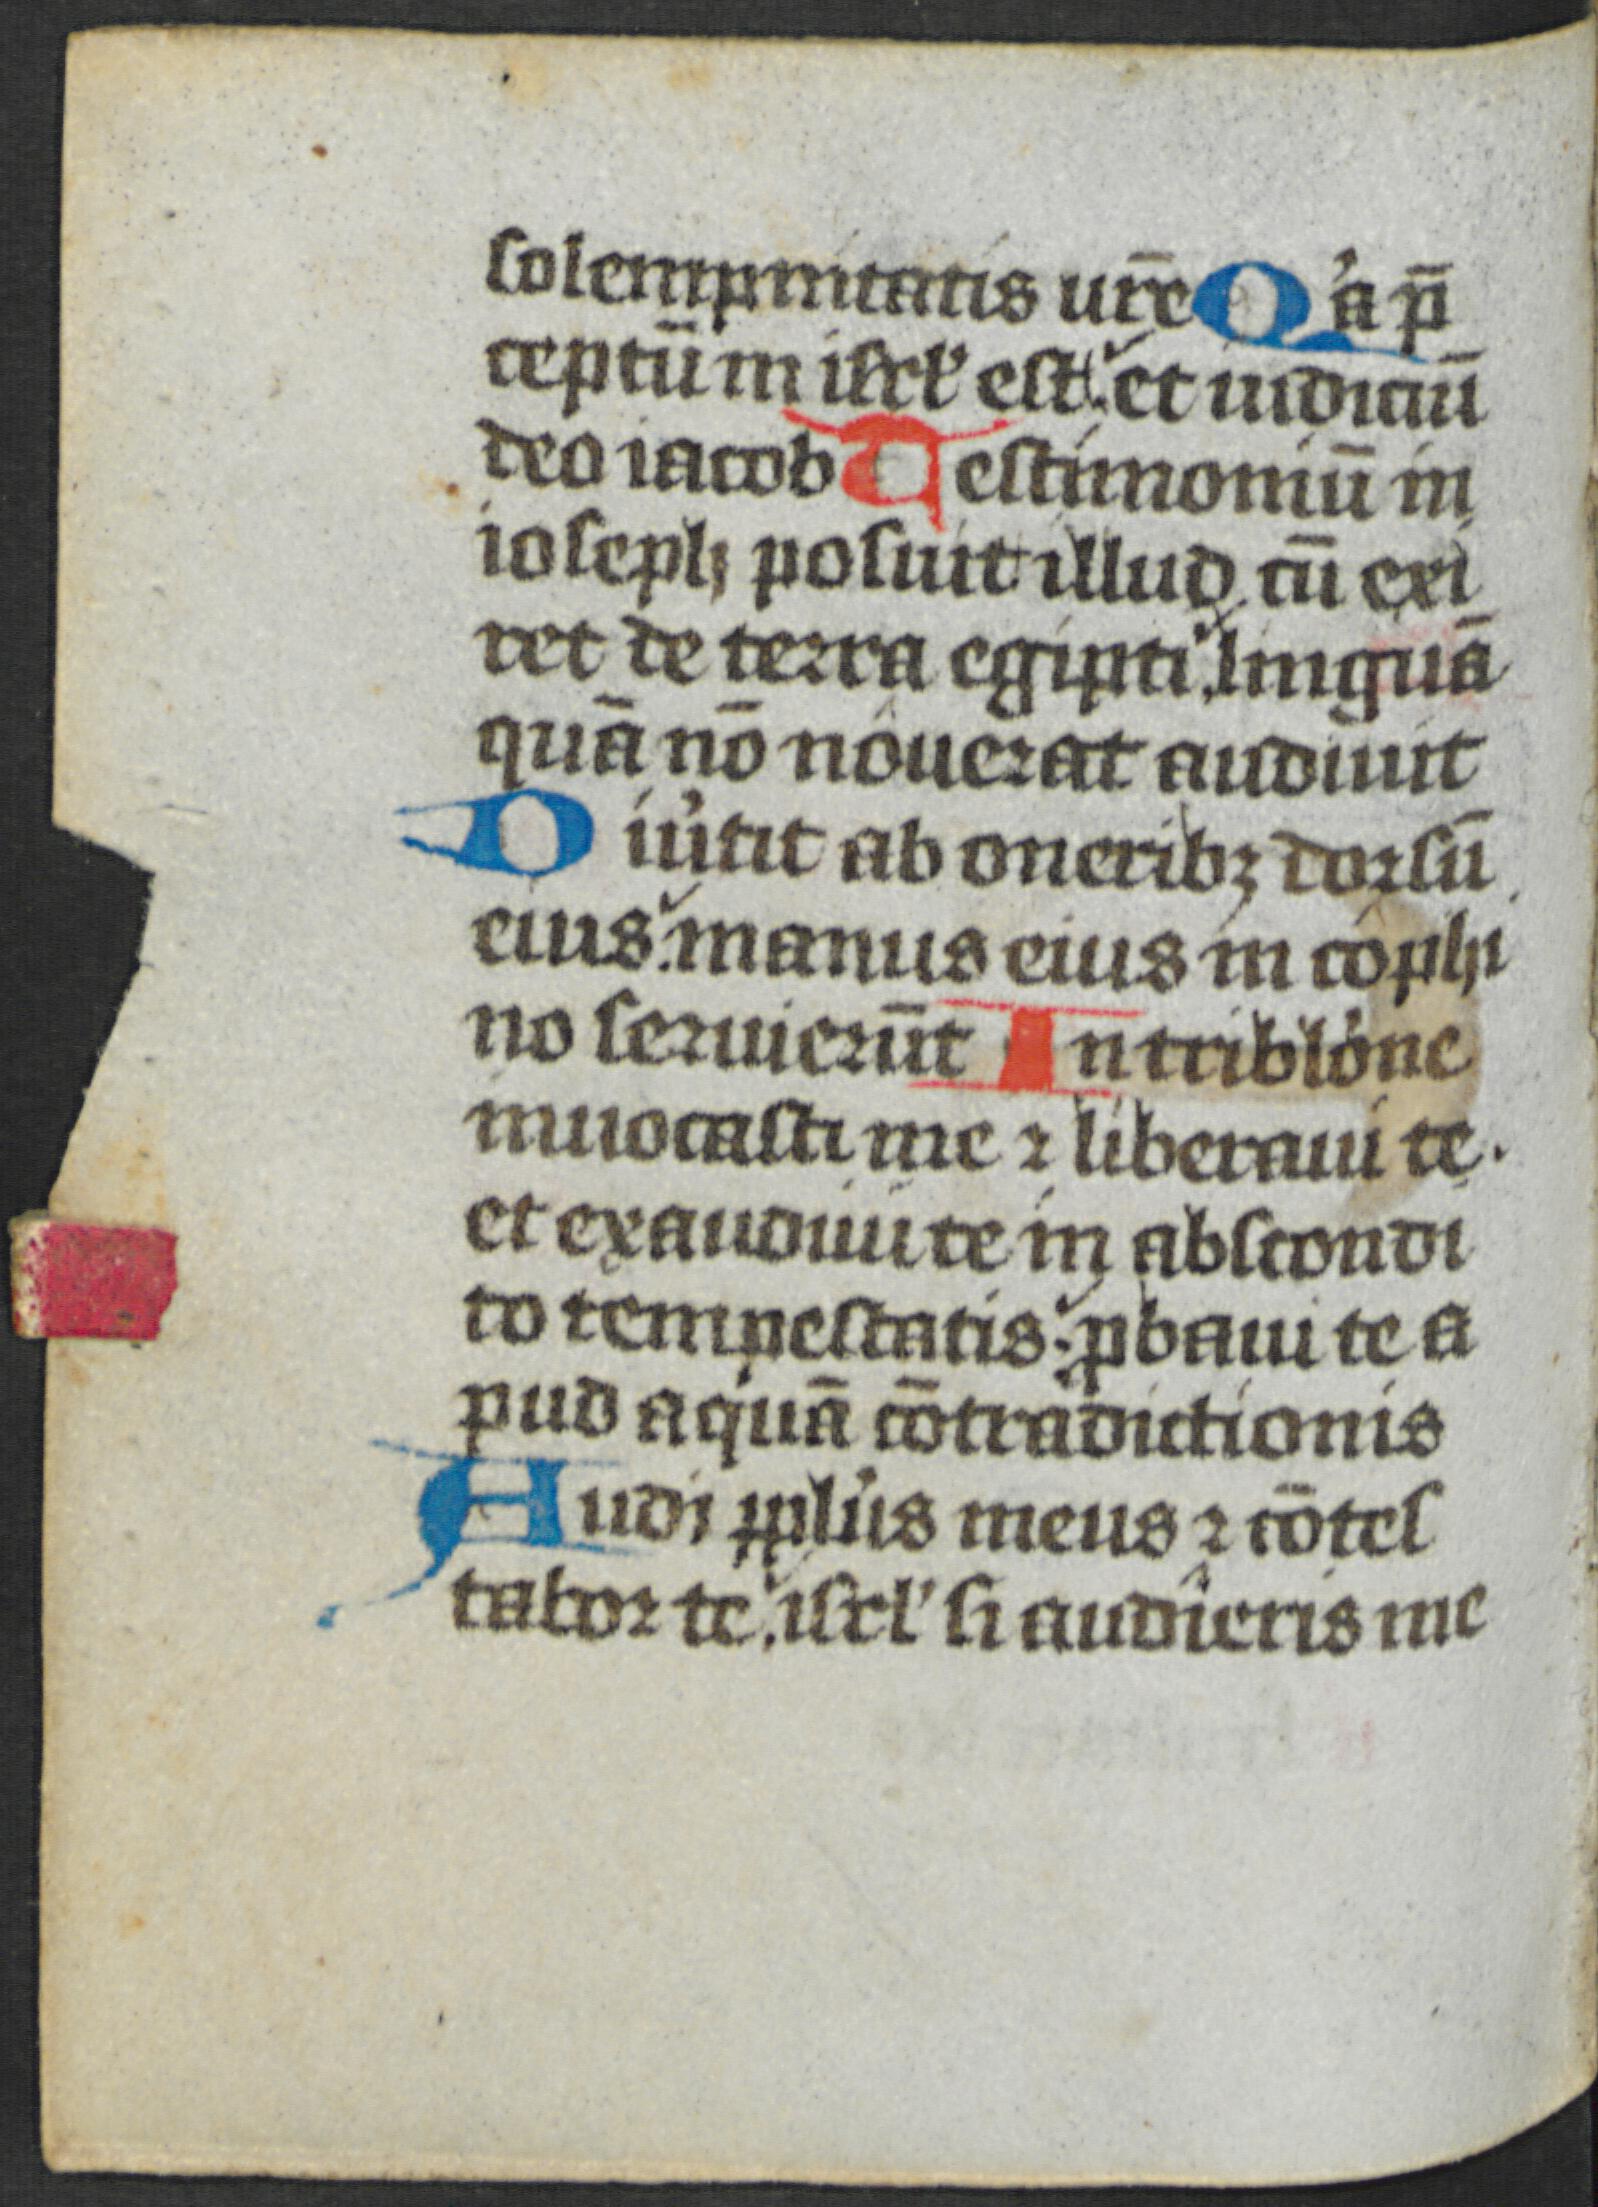 solempnitatis ur̄e Qͥa p̄
ceptū in isrl' est. et iudiciū
deo iacob Testimoniū in
ioseph posuit illud cū exi
ret de terra egipti. linguā
quā nō nouerat audiuit
Diu'tit ab oneribꝫ dorsū
eius. manus eius in cophi
no seruierūt In tribl'one
inuocasti me ⁊ liberaui te.
et exaudiui te in abscondi
to tempestatis. ꝓbaui te a
pud aquā cōtradictionis
Audi ppl'us meus ⁊ cōtes
tabor te. isrl' si audieris me